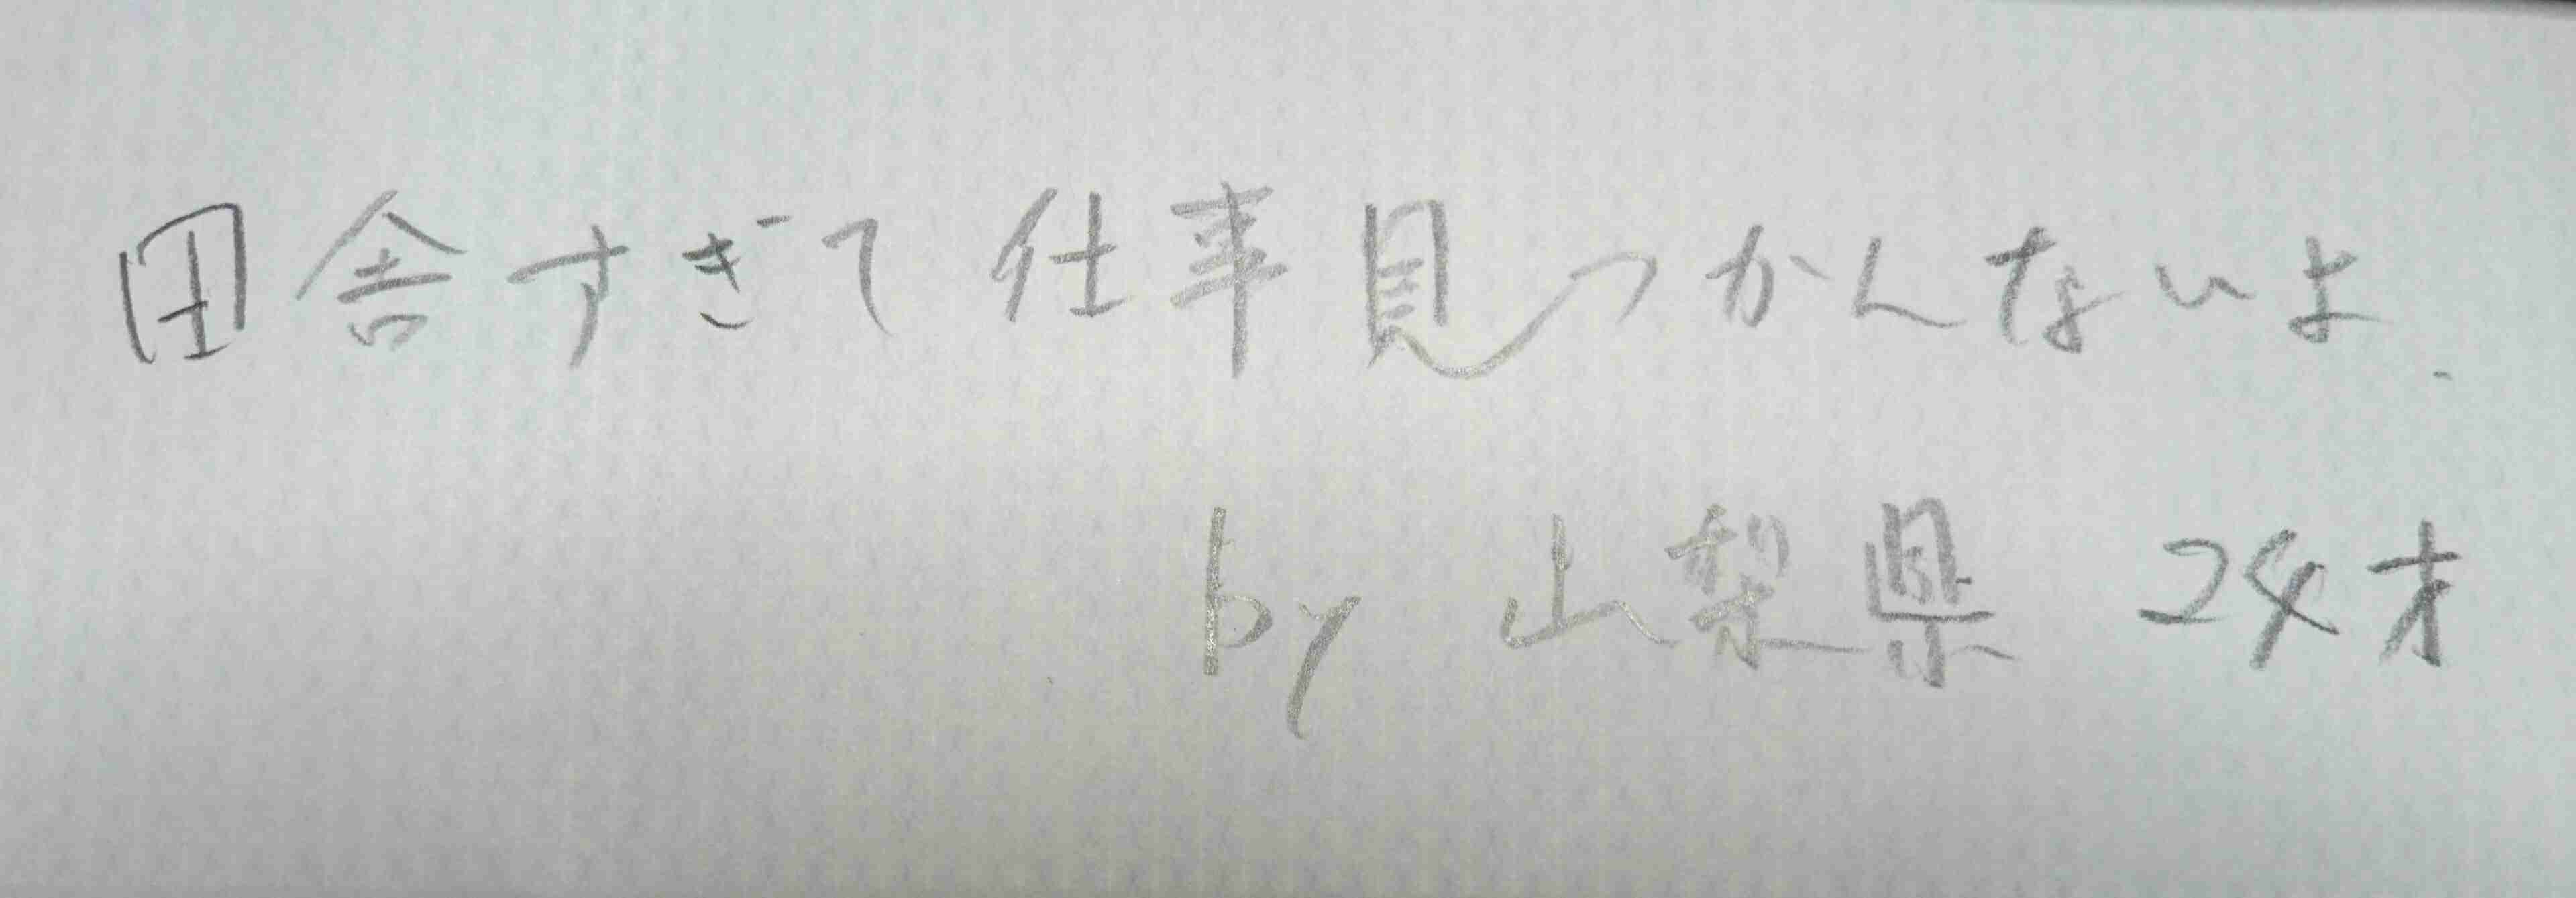 田舎すぎて仕事見つかんないよ.
by 山梨県 24才